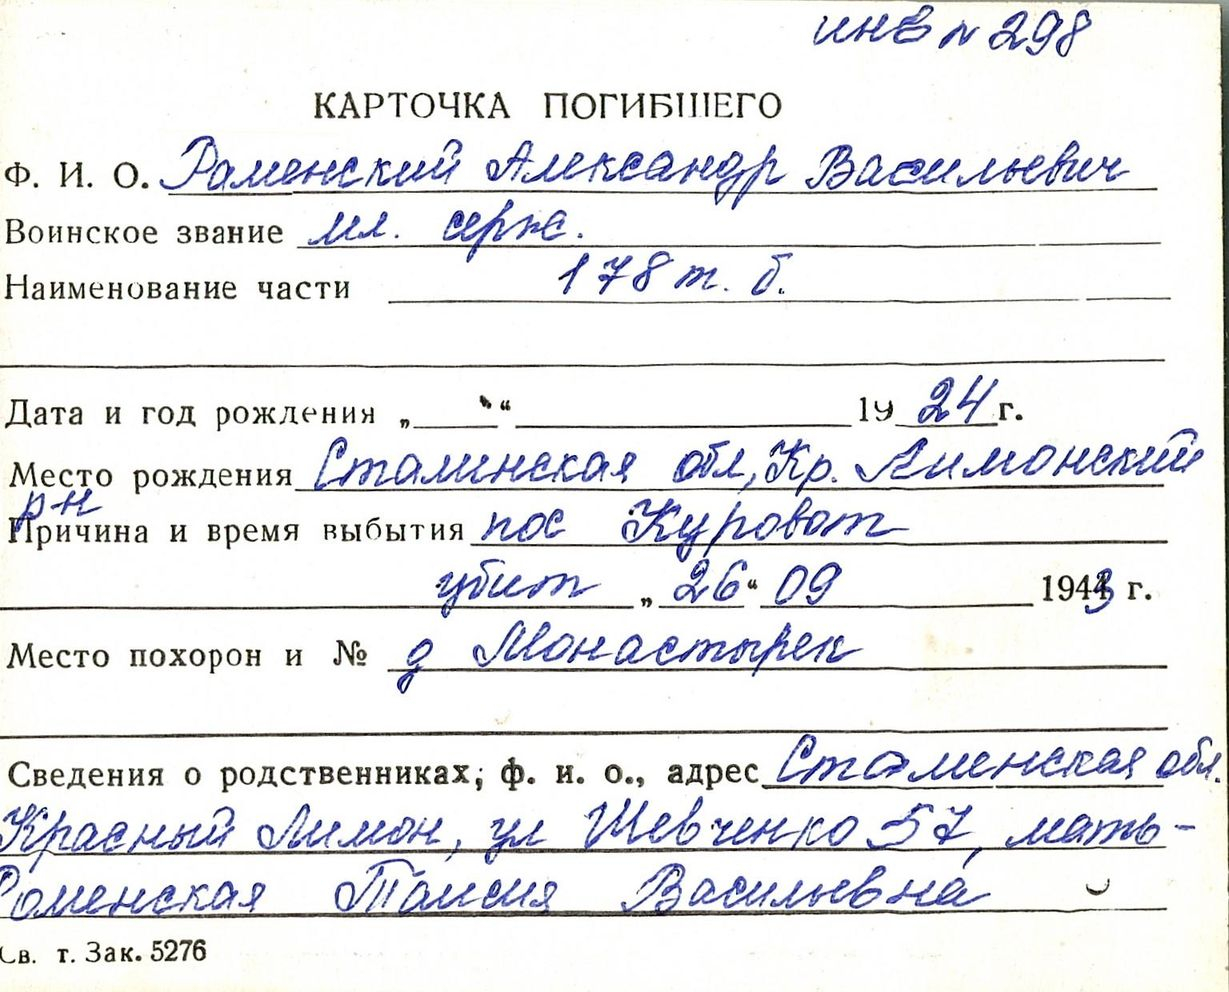 инв № 298
КАРТОЧКА ПОГИБШЕГО
Ф. И. О. Раменский Александр Васильевич
Воинское звание мл. серж.
Наименование части 178 т. б.
Дата и год рождения „ “ 1924 г.
Место рождения Сталинская обл, Кр. Лиманский
р-н
Причина и время выбытия пос Куроват
убит „26“ 09 1943 г.
Место похорон и № д Монастырек
Сведения о родственниках, ф. и. о., адрес Сталенская обл.
Красный Лимон, ул Шевченко 57, мать-
Раменская Таисия Васильевна
Св. т. Зак. 5276